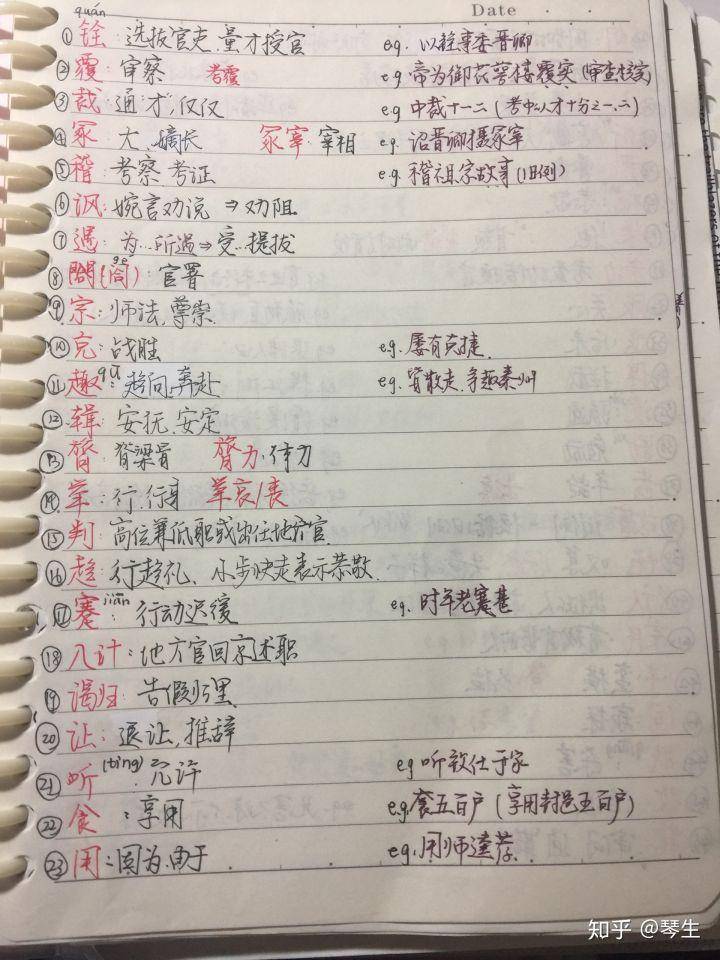 Date
quán
①铨:选拔官吏,量才授官 e.g. 以铨事委晋卿
②覆:审察 考覆 e.g. 帝为御花萼楼覆实(审查核实)
③裁:通"才",仅仅 e.g 中裁十一二(考中人才十分之一、二)
④冢:大、嫡长 冢宰:宰相 e.g. 诏晋卿摄冢宰
⑤稽:考察、考证 e.g. 稽祖宗故事(旧例)
⑥讽:婉言劝说⇒劝阻
⑦遇:为…所遇⇒受…提拔
gé
⑧閤(阁):官署
⑨宗:师法,尊崇
⑩克:战胜 e.g. 屡有克捷
qū
⑪趣:趋向、奔赴 e.g. 皆散走,争趣秦州
⑫辑:安抚、安定
⑬膂:脊梁骨 膂力:体力
⑭举:行、行身 举哀/丧
⑮判:高位兼低职或出任地方官
⑯趋:行趋礼、小步快走表示恭敬
jiǎn
⑰蹇:行动迟缓 e.g. 时年老蹇甚
⑱入计:地方官回京述职
⑲谒归:告假归里
⑳让:退让,推辞
㉑听(tìng):允许 e.g 听致仕于家
㉒食:享用 e.g. 食五百户(享用封邑五百户)
㉓用:因为、由于 e.g. 用师逵荐
知乎 @琴生